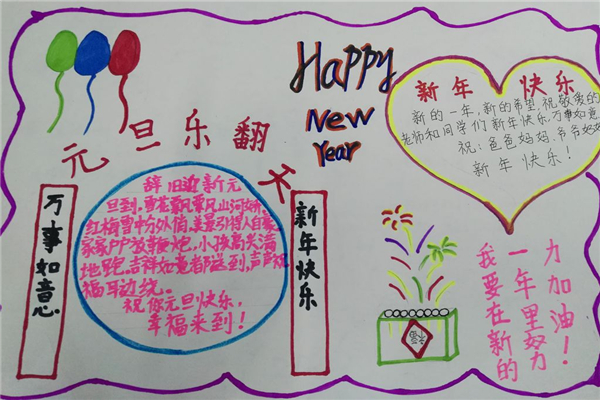 Happy
New
Year
元旦乐翻天
新年快乐
新的一年,新的希望,祝敬爱的
老师和同学们 新年快乐,万事如意
祝:爸爸妈妈、爷爷奶奶
新年快乐!
万事如意
辞旧迎新元
旦到,雪花飘飘风山河娇,
红梅雪中分外俏,美景引得人自豪
家家户户放鞭炮,小孩高兴满
地跑,吉祥如意都送到,声声祝
福耳边绕。
祝你元旦快乐,
幸福来到!
新年快乐
我要在新的
一年里努力
力加油!